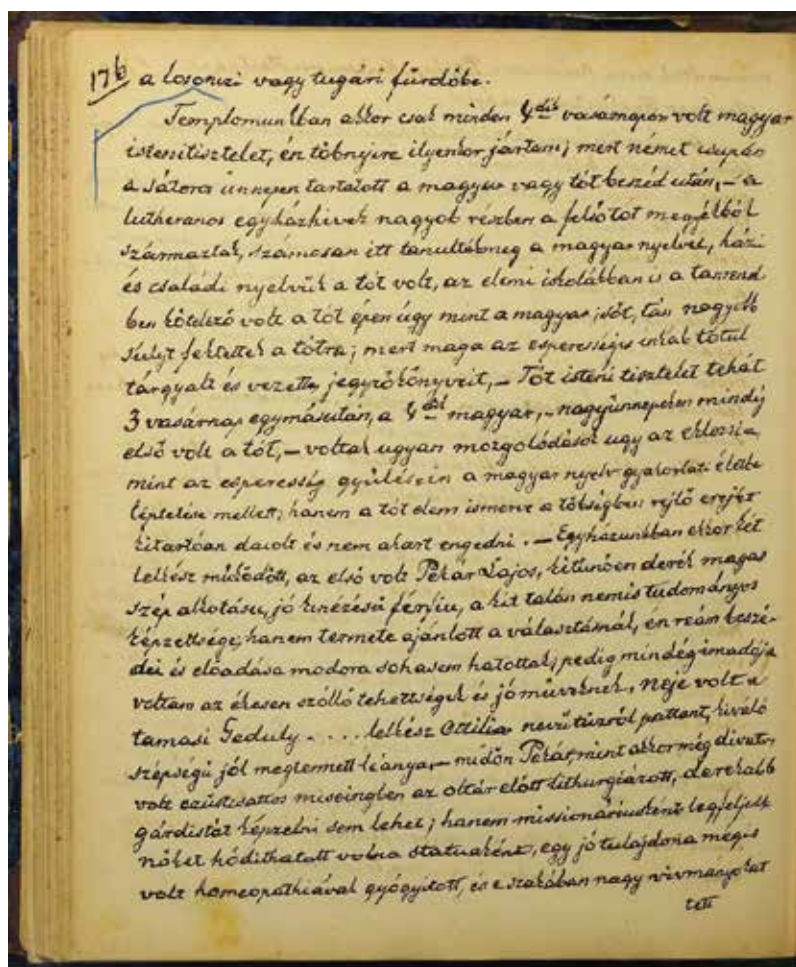 176 a losonczi vagy tugári fürdőbe.
Templomunkban akkor csak minden 4dik vasárnapon volt magyar
istenitisztelet, én többnyire ilyenkor jártam; mert német csupán
a sátoros ünnepen tartatott a magyar vagy tót beszéd után, – a
lutheranos egyházhivek nagyob részben a felső tot megyékből
származtak, számosan itt tanultak meg a magyar nyelvet, házi
és családi nyelvük a tót volt, az elemi iskolákban is a tanrend
ben kötelező volt a tót épen úgy mint a magyar, sőt, tán nagyobb
sulyt fektettek a tótra; mert maga az esperességis inkab tótul
tárgyalt és vezette jegyzőkönyveit, – Tót isteni tisztelet tehát
3 vasárnap egymásután, a 4dik magyar, – nagyünnepeken mindíg
első volt a tót, – voltak ugyan mozgolódások ugy az eklézsia,
mint az esperesség gyülésein a magyar nyelv gyakorlati életbe
léptetése mellett; hanem a tót elem ismerve a többségben rejlő erejét
kitartóan dacolt és nem akart engedni. – Egyházunkban ekkor két
lelkész működött, az első volt Pékár Lajos, kitünően derék magas
szép alkotásu, jó kinézésü férfiu, a kit talán nemis tudományos
képzettsége, hanem termete ajánlott a választásnál, én reám beszé-
dei és előadása modora sohasem hatottak; pedig mindég imadója
voltam az ékesen szólló tehettségek és jó műveknek, neje volt a
tamasi Geduly . . . . lelkész Ottilia nevű tüzről pattant, kiváló
szépségü jól megtermett leánya, – midőn Pékár, mint akkor még divatos
volt ezüstcsattos miseingben az oltár előtt lithurgiázott, derekabb
gárdistát képzelni sem lehet; hanem missionáriusként legfeljebb
nőket hódithatott volna statuaként, egy jó tulajdona mégis
volt homeopathiával gyógyitott, és e szakában nagy vivmányokat
tett